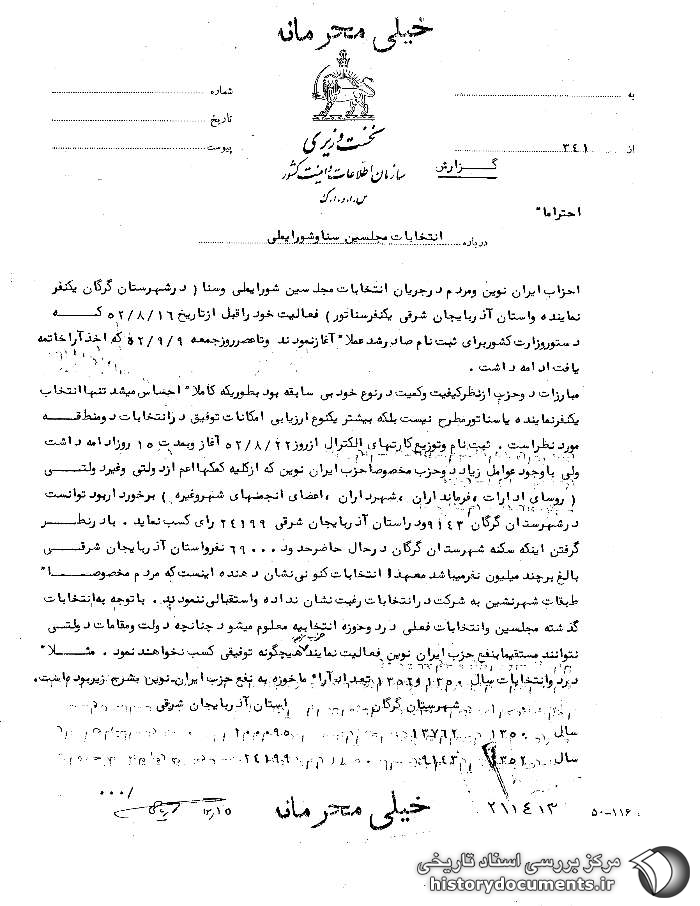 خیلی محرمانه
به
شماره
تاریخ
نخست وزیری
از ۳۴۱
پیوست
گزارش
سازمان اطلاعات و امنیت کشور
س.ا.و.ا.ک
احتراما"
درباره انتخابات مجلسین سنا وشورایملی
احزاب ایران نوین ومردم درجریان انتخابات مجلسین شورایملی وسنا ( درشهرستان گرگان یکنفر
نماینده واستان آذربایجان شرقی یکنفرسناتور ) فعالیت خود راقبل ازتاریخ ۵۲/۸/۱۶ که
دستوروزارت کشوربرای ثبت نام صادرشد عملا" آغازنمودند وتاعصرروزجمعه ۵۲/۹/۹ که اخذ آرا خاتمه
یافت ادامه داشت .
مبارزات دوحزب ازنظرکیفیت وکمیت درنوع خود بی سابقه بود بطوریکه کاملا" احساس میشد تنها انتخاب
یکنفرنماینده یاسناتورمطرح نیست بلکه بیشتر یکنوع ارزیابی امکانات توفیق درانتخابات دومنطقه
مورد نظراست . ثبت نام وتوزیع کارتهای الکترال ازروز ۵۲/۸/۲۲ آغاز وبمدت ۱۵ روزادامه داشت
ولی باوجود عوامل زیاد دوحزب مخصوصا" حزب ایران نوین که ازکلیه کمکها اعم ازدولتی وغیردولتی
( روسای ادارات ، فرمانداران ، شهرداران ، اعضای انجمنهای شهروغیره ) برخوردار بود توانست
درشهرستان گرگان ۹۱۴۳ ودراستان آذربایجان شرقی ۲۴۱۹۹ رای کسب نماید . بادرنظر
گرفتن اینکه سکنه شهرستان گرگان درحال حاضرحدود ۶۹۰۰۰ نفرواستان آذربایجان شرقی
بالغ برچند میلیون نفرمیباشد معهذا انتخابات کنونی نشان دهنده اینست که مردم مخصوصا"
طبقات شهرنشین به شرکت درانتخابات رغبت نشان نداده واستقبالی ننمودند . باتوجه به انتخابات
گذشته مجلسین وانتخابات فعلی دردوحوزه انتخابیه معلوم میشود چنانچه دولت ومقامات دولتی
نتوانند مستقیما بنفع حزب ایران نوین فعالیت نمایند هیچگونه توفیقی کسب نخواهند نمود . مثلا"
دردوانتخابات سال ۱۳۵۰ و ۱۳۵۲ تعداد آرا ماخوذه به نفع حزب ایران نوین بشرح زیربوده است.
شهرستان گرگان استان آذربایجان شرقی
سال ۱۳۵۰ ۱۳۷۶۲
سال ۱۳۵۲ ۹۱۴۳ ۲۴۱۹۹
/۰۰۰
خیلی محرمانه
۲۱۱۴۱۳
۵۰-۱۱۶
مرکز بررسی اسناد تاریخی
historydocuments.ir